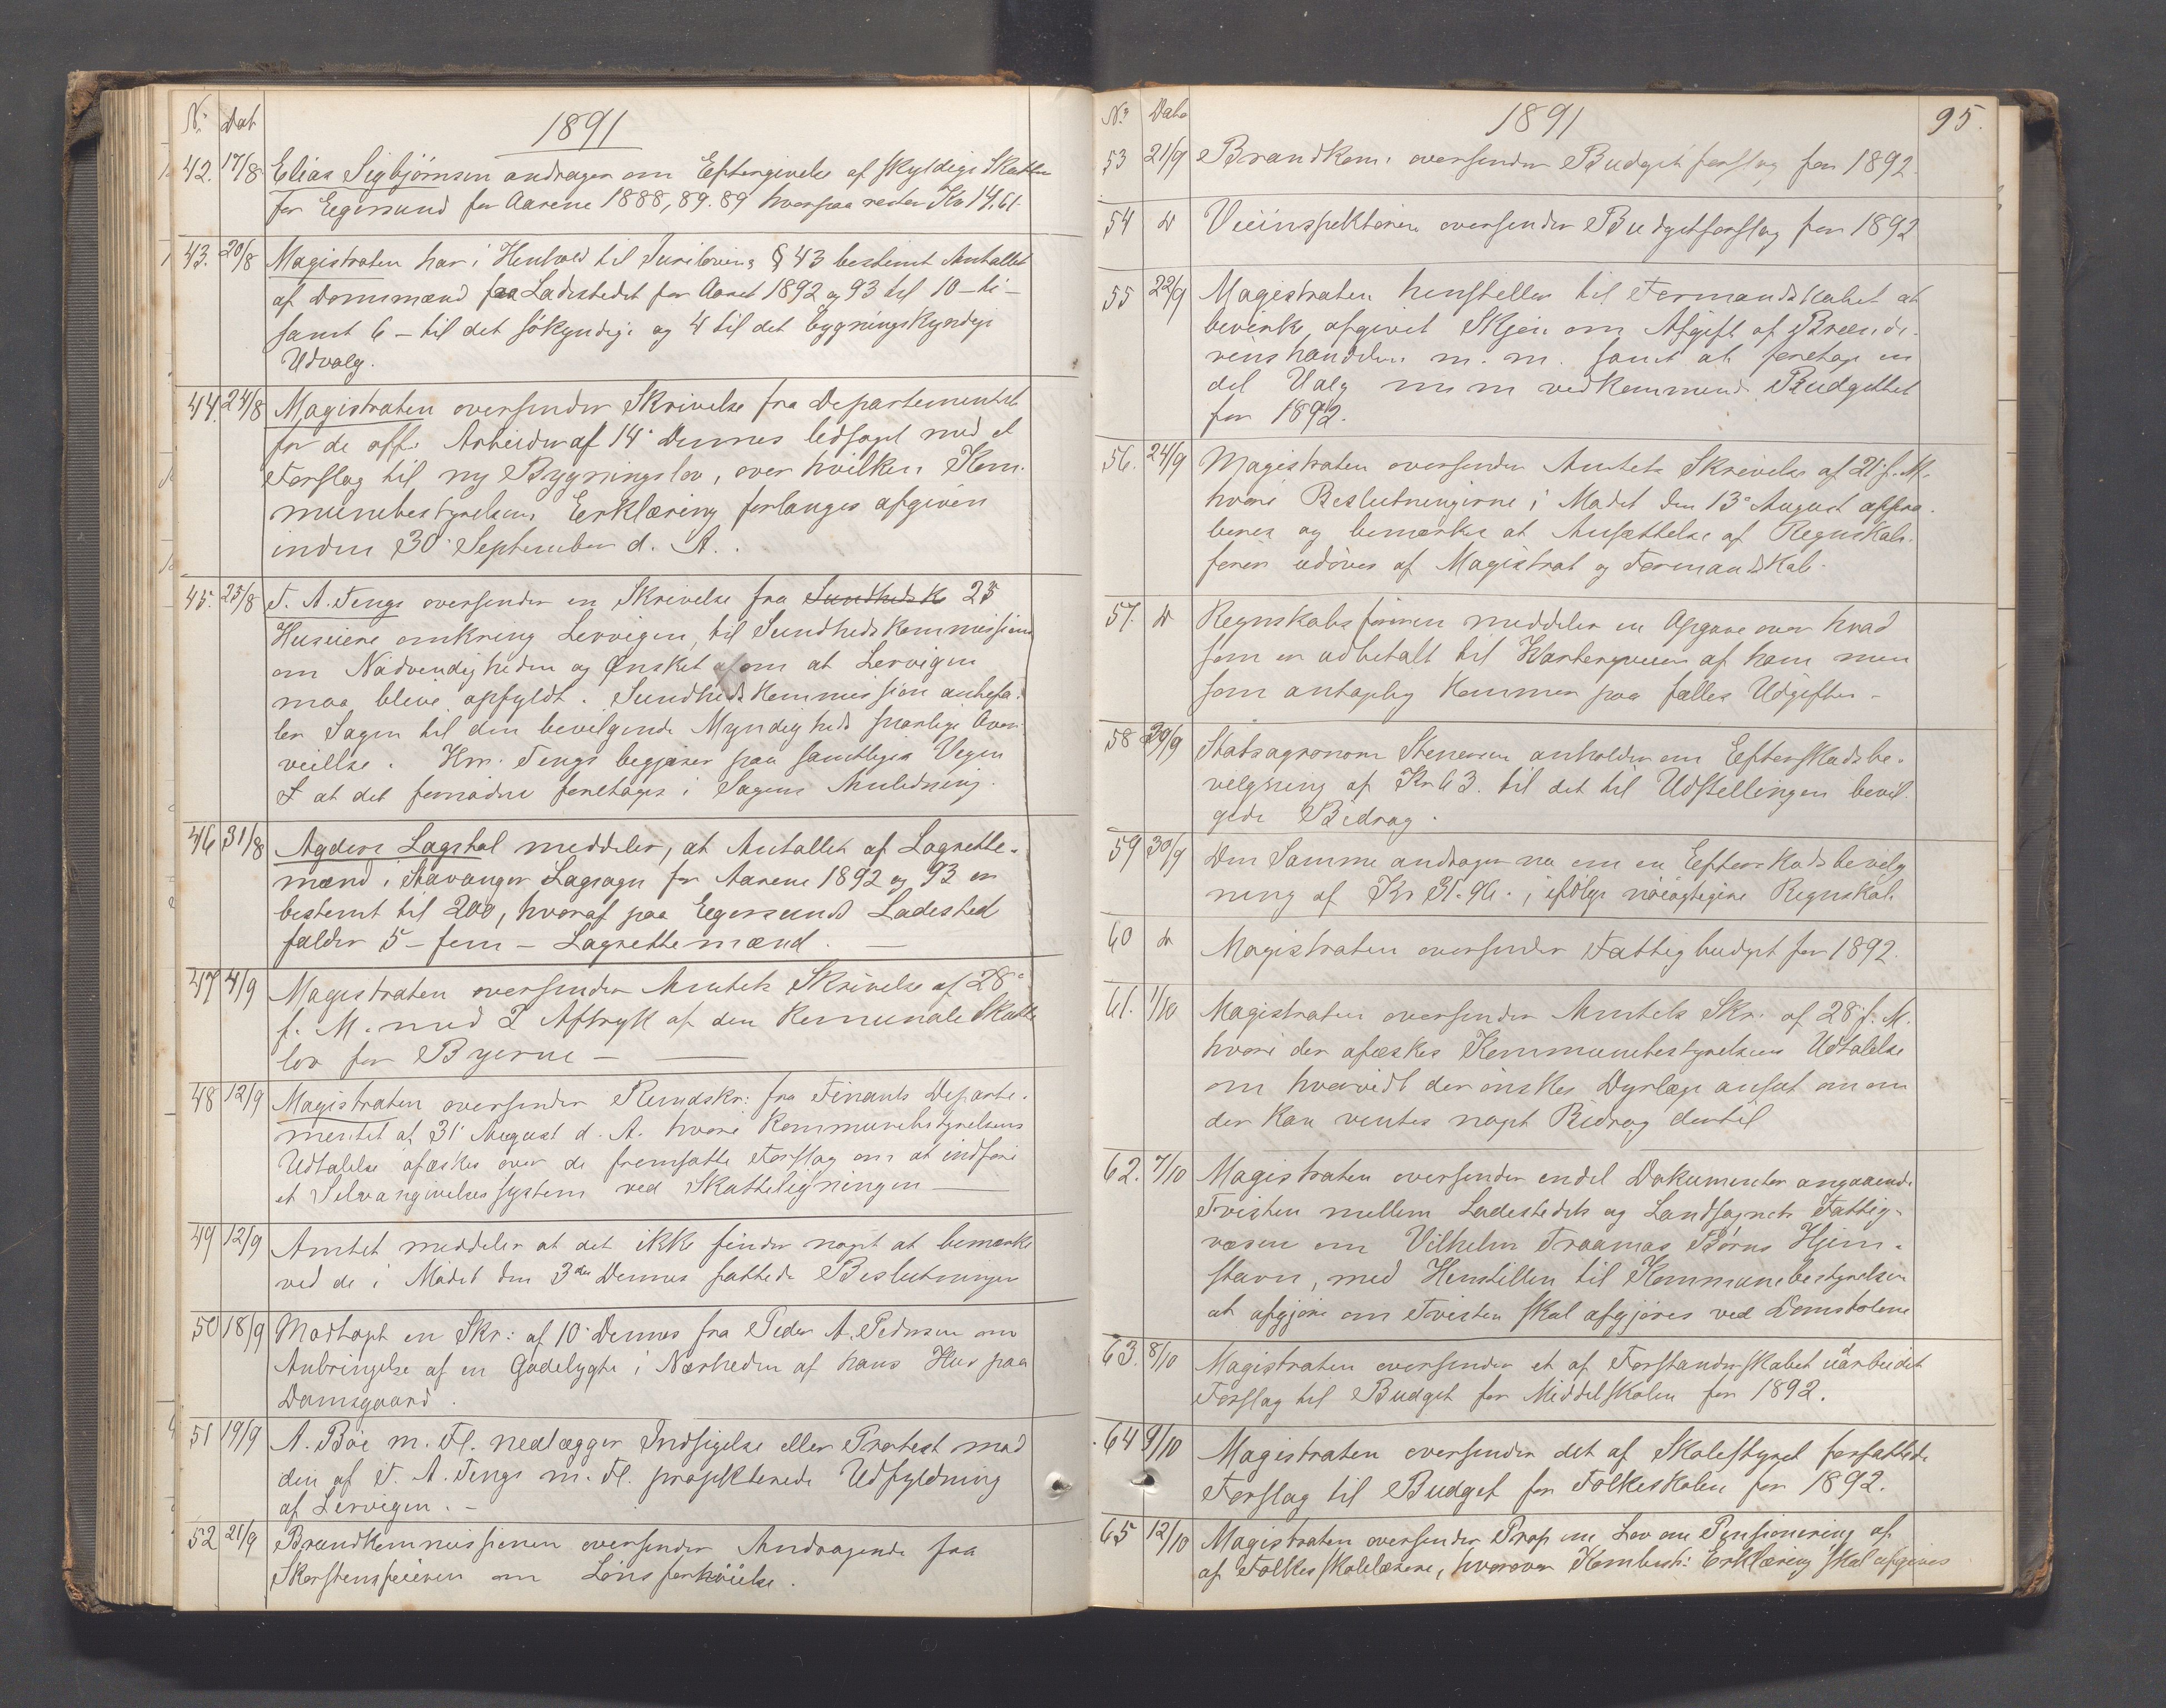 No. Dat
1891
42. 17/8 Elias Sigbjörnsen andrager om Eftergivelse af skyldige Skatter
for Egersund for Aarene 1888, 89. 89 hvorpaa rester Kr 14,61.
43. 20/8 Magistraten har i Henhold til Juriloven § 43 bestemt Antallet
af Domsmænd for Ladestedet for Aaret 1892 og 93 til 10 - ti -
samt 6 - til det sökyndige og 4 til det bygningskyndige
Udvalg.
44. 24/8 Magistraten oversender Skrivelse fra Departementet
for de offe Arbeider af 14de Dennes ledsaget med et
Forslag til ny Bygningslov, over hvilken Kom-
munebestyrelsens Erklæring forlanges afgiven
inden 30. September d. A.
45. 25/8 T. A. Tengs oversender en Skrivelse fra Sundhedsk 25
Huseiere omkring Lervigen, til Sundhedskommissionen
om Nödvendigheden og Ønsket om at Lervigen
maa blive opfyldt. Sundhedskommission anbefa-
ler Sagen til den bevilgende Myndigheds snarlige Over-
veielse. Hrr. Tengs begjærer paa samtliges Vegne
at det fornödne foretages i Sagens Anledning.
46 31/8 Agders Lagstol meddeler, at Antallet af Lagrette-
mænd i Stavanger Lagsogn for Aarene 1892 og 93 er
bestemt til 200, hvoraf paa Egersunds Ladested
falder 5 - fem - Lagrettemænd. —
47 4/9 Magistraten oversender Amtets Skrivelse af 28de
f. M. med 2 Aftryk af den Kommunale Skatte
lov for Byerne — —
48 12/9 Magistraten oversender Rundskr: fra Finants Departe-
mentet af 31. August d. A. hvori Kommunebestyrelsens
Udtalelse afæskes over de fremsatte Forslag om at indföre
et Selvangivelsessystem ved Skatteligningen —
49 12/9 Amtet meddeler at det ikke finder noget at bemærke
ved de i Mödet den 3die Dennes fattede Beslutninger
50 18/9 Modtaget en Skr: af 10. Dennes fra Peder A. Pedersen om
Anbringelse af en Gadelygte i Nærheden af hans Hus paa
Damsgaard.
51 19/9 A. Böe m. Fl. nedlægger Indsigelse eller Protest mod
den af T. A. Tengs m. Fl. projekterede Udfyldning
af Lervigen. -
52 21/9 Brandkommissionen oversender Andragende fra
Skorstensfeieren om Lönsforhöielse.
No. Dato
1891
95.
53 21/9 Brandkom. oversender Budgetforslag for 1892.
54 do Veiinspektören oversender Budgetforslag for 1892
55 22/9 Magistraten henstiller til Formandskabet at
bevirke afgivet Skjön om Afgift af Brænde-
vinshandelen m. m. samt at foretage en
del Valg m m vedkommende Budgettet
for 1892.
56. 24/9 Magistraten oversender Amtets Skrivelse af 21. f. M.
hvori Beslutningerne i Mödet den 13de August appro-
beres og bemærkes at Ansættelse af Regnskabs-
förer udöves af Magistrat og Formandskab.
57. do Regnskabsföreren meddeler en Opgave over hvad
som er udbetalt til Kvartervæsen af ham men
som antagelig kommer paa fælles Udgifter -
58 29/9 Statsagronom Stenersen anholder om Efterskudsbe-
vilgning af Kr 63. til det til Udstillingen bevil-
gede Bidrag.
59 30/9 Den Samme andrager nu om en Efterskudsbevilg
ning af Kr 31.96. ; ifölge nöiagtigere Regnskab.
60 do Magistraten oversender Fattigbudget for 1892.
61. 1/10 Magistraten oversender Amtets Skr. af 28. f. M.
hvori der afæskes Kommunebestyrelsens Udtalelse
om hvorvidt der önskes Dyrlæge ansat om om
der kan ventes noget Bidrag dertil
62. 7/10 Magistraten oversender endel Dokumenter angaaende
Tvisten mellem Ladestedets og Landsognets Fattig-
væsen om Vilhelm Traamas Börns Hjem-
stavn, med Henstillen til Kommunebestyrelsen
at afgjöre om Tvisten skal afgjöres ved Domstolene
63. 8/10 Magistraten oversender et af Forstanderskabet udarbeidet
Forslag til Budget for Middelskolen for 1892.
64 9/10 Magistraten oversender det af Skolestyret forfattede
Forslag til Budget for Folkeskolen for 1892.
65 12/10 Magistraten oversender Prop. om Lov om Pensionering af
af Folkeskolelærere, hvorover Kombest: Erklæring skal afgives